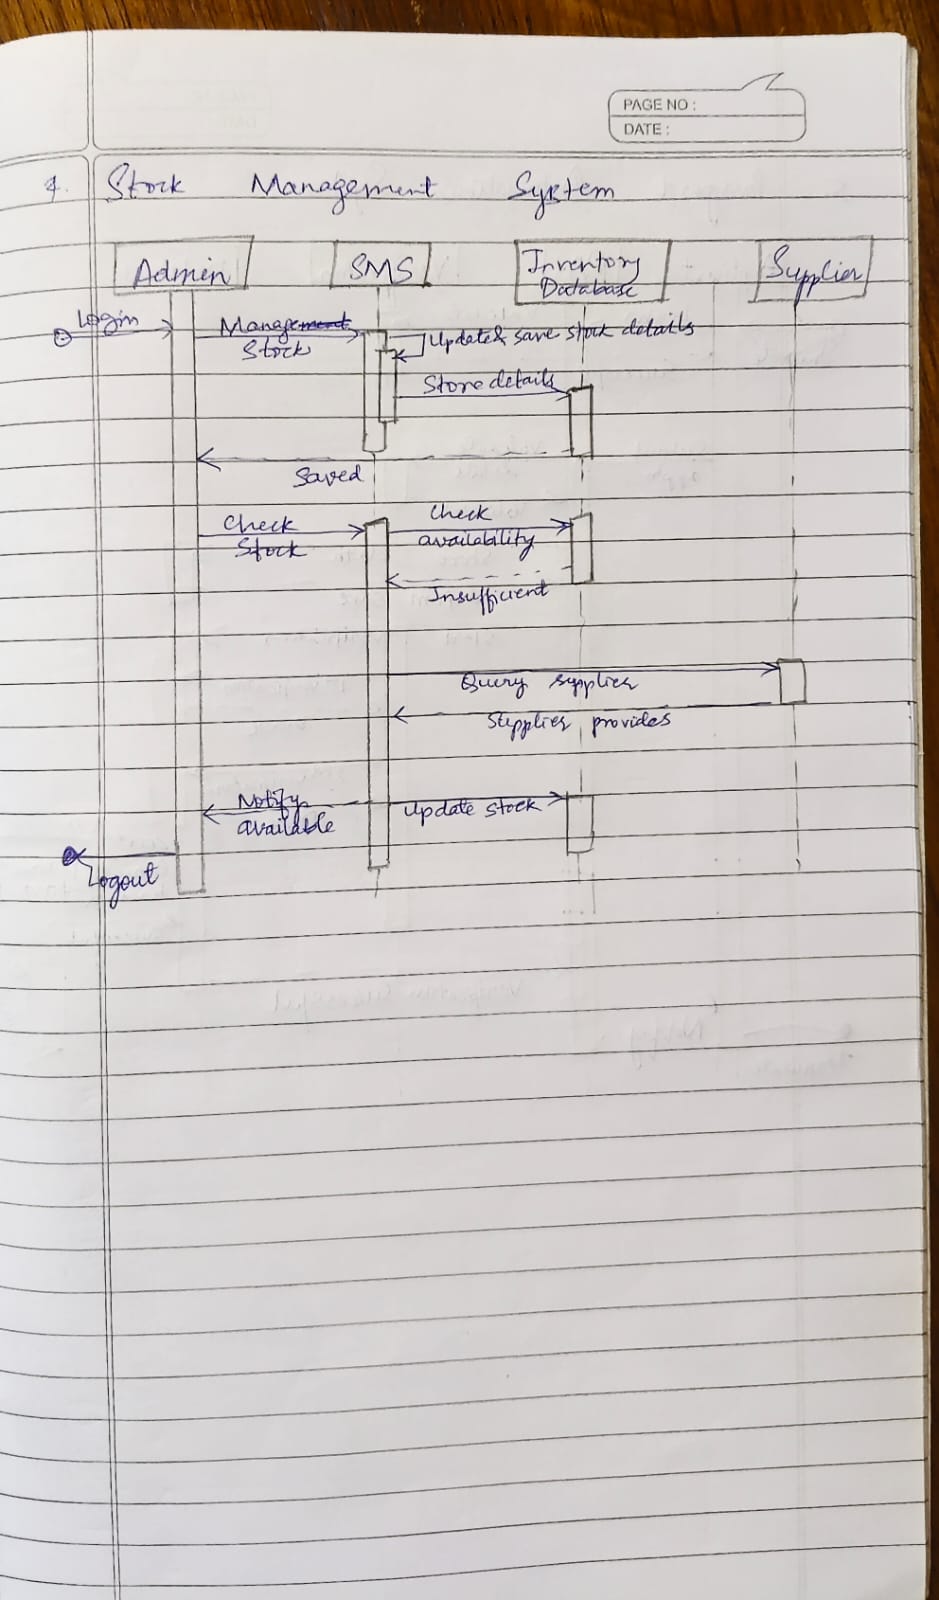 PAGE NO :
DATE :
Stock Management System
Admin
SMS
Inventory
Database
Supplier
Login
Manage
Stock
Update & save stock details
Store details
Saved
Check
Stock
Check
availability
Insufficient
Query supplier
Supplier provides
Notify
available
Update stock
Logout